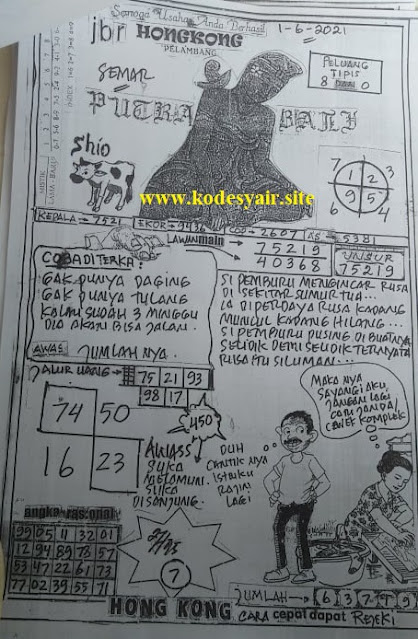 Semoga Usaha Anda Berhasil
1-6-2021
jbr HONGKONG
PELAMBANG
SEMAR
PELUANG
TIPIS
8 0
PUTRA BALI
Shio
7 3
1 2
9 5
6 4
www.kodesyair.site
KEPALA = 7521 EKOR = 9436 COP = 2607 AS = 5381
LAWAN main
75219
40368
UNSUR
75219
COBA DITERKA:
GAK PUNYA DAGING
GAK PUNYA TULANG
KALAU SUDAH 3 MINGGU
DIA AKAN BISA JALAN.
AWAS JUMLAH NYA.
SI PEMBURU MENGINCAR RUSA
DI SEKITAR SUMUR TUA...
IA DI PERDAYA RUSA KADANG
MUNCUL KADANG HILANG...
SI PEMBURU PUSING DI BUATNYA
SELIDIK DEMI SELIDIK TERNYATA
RUSA ITU SILUMAN...
JALUR UANG
75 21 93
98 17
74 50
16 23
450
AKIASS
SUKA
MELAMUN.
SUKA
DISANJUNG.
DUH
CANTIK NYA
ISTRIKU
RAJIN
LAGI
MAKA NYA
SAYANGI AKU,
JANGAN LAGI
CARI JANDA/
CEWEK KOMPLEK
angka rasional
99 05 11 32 01
12 94 89 78 57
53 47 22 61 73
77 02 39 55 71
7
JUMLAH
HONG KONG CARA cepat dapat REJEKI